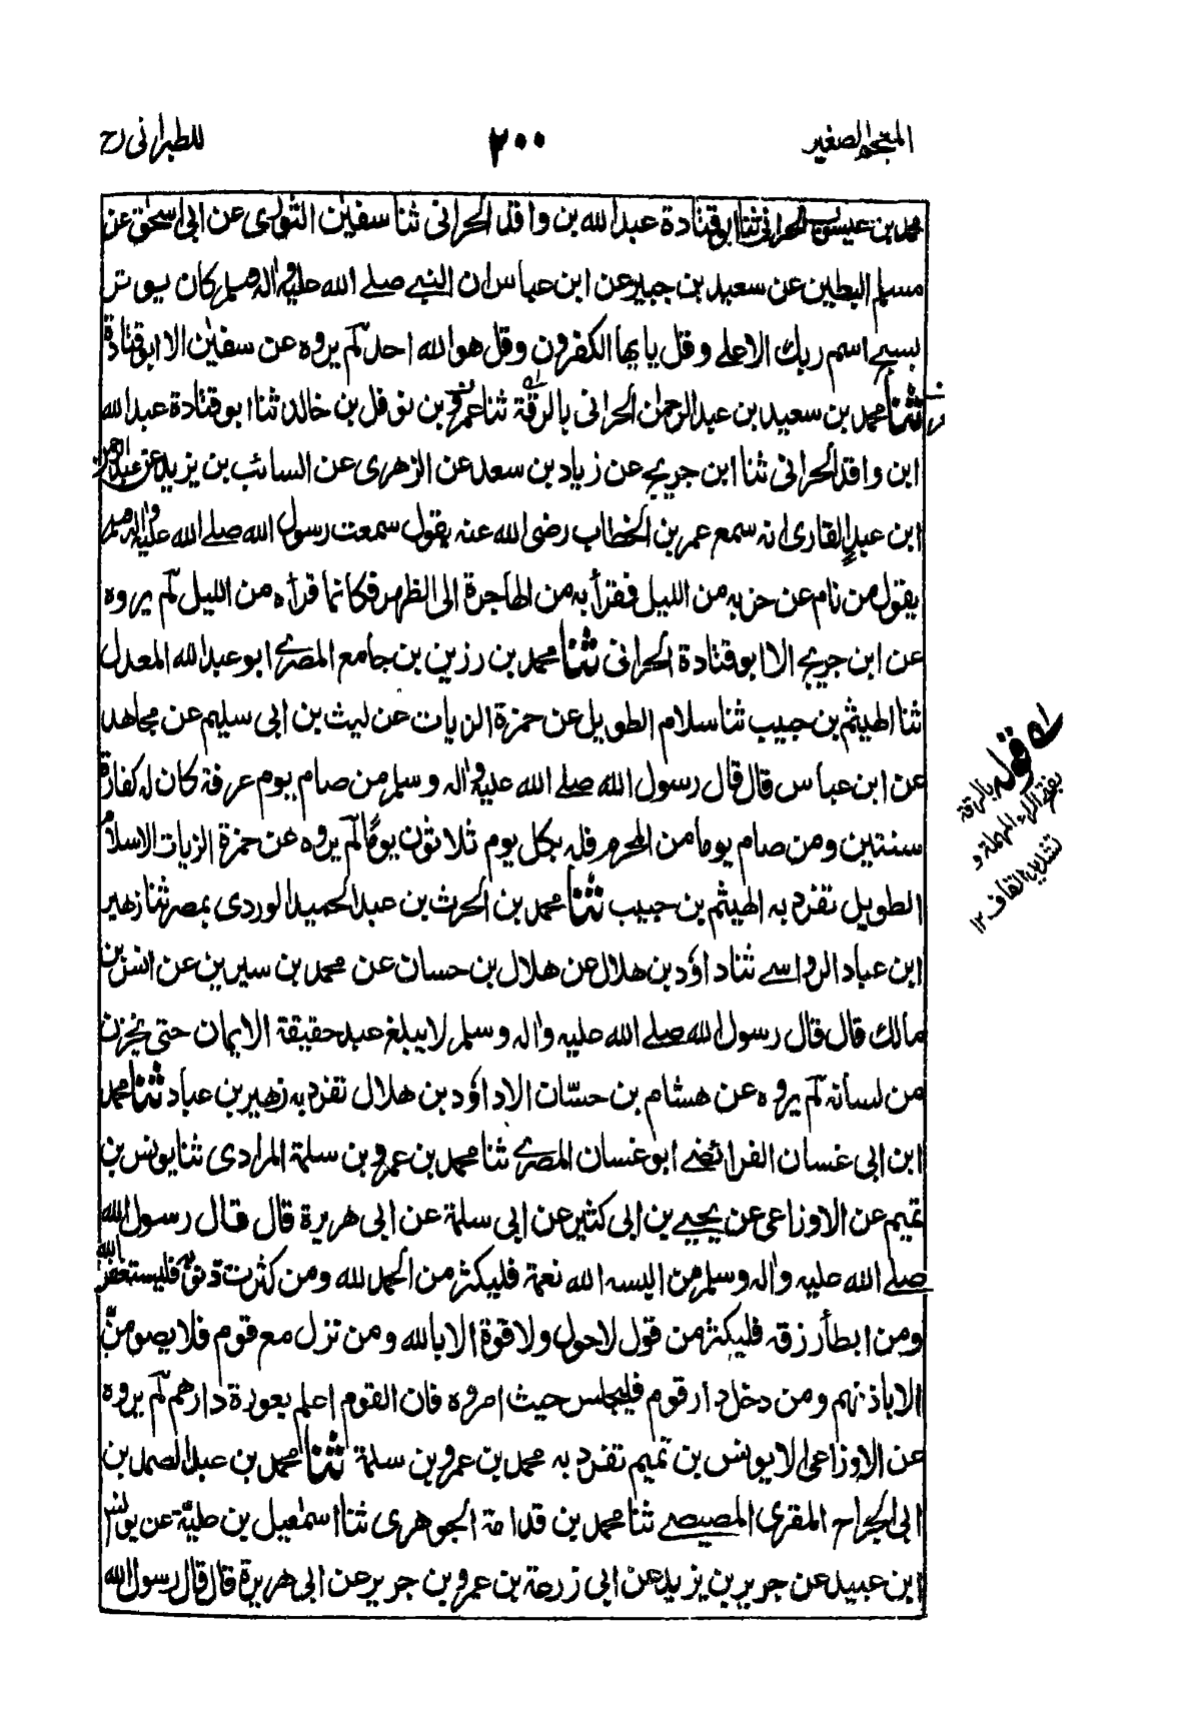 المعجم الصغير
٢٠٠
للطبرانی رح
محمد بن عيسى الحرانی ثنا ابو قتادة عبد الله بن واقد الحرانی ثنا سفين الثوری عن ابی اسحق عن
مسلم البطين عن سعيد بن جبير عن ابن عباس ان النبے صلے الله عليه واله وسلم كان يوتر
بسبح اسم ربك الاعلے وقل يايها الكفرون وقل هو الله احد لم يروه عن سفين الا ابو قتادة
ثنا محمد بن سعيد بن عبد الرحمن الحرانی بالرقة ثنا عمرو بن نوفل بن خالد ثنا ابو قتادة عبد الله
ابن واقد الحرانی ثنا ابن جريج عن زياد بن سعد عن الزهری عن السائب بن يزيد عن عبد الرحمن
ابن عبدٍ القاری انه سمع عمر بن الخطاب رضی الله عنه يقول سمعت رسول الله صلے الله عليه واله وسلم
يقول من نام عن حزبه من الليل فقرأ به من الهاجرة الی الظهر فكانما قرأه من الليل لم يروه
عن ابن جريج الا ابو قتادة الحرانی ثنا محمد بن رزين بن جامع المصرے ابو عبد الله المعدل
ثنا الهيثم بن حبيب ثنا سلام الطويل عن حمزة الزيات عن ليث بن ابی سليم عن مجاهد
عن ابن عباس قال قال رسول الله صلے الله عليه واله وسلم من صام يوم عرفة كان له كفارة
سنتين ومن صام يوما من المحرم فله بكل يوم ثلاثون يومًا لم يروه عن حمزة الزيات الا سلام
الطويل تفرد به الهيثم بن حبيب ثنا محمد بن الحرث بن عبد الحميد الوردی بمصر ثنا زهير
ابن عباد الرواسے ثنا داؤد بن هلال عن هلال بن حسان عن محمد بن سيرين عن انس بن
مالك قال قال رسول الله صلے الله عليه واله وسلم لا يبلغ عبد حقيقة الايمان حتی يخزن
من لسانه لم يروه عن هشام بن حسّان الا داؤد بن هلال تفرد به زهير بن عباد ثنا محمد
ابن ابی غسان الفرائضے ابو غسان المصرے ثنا محمد بن عمرو بن سلمة المرادی ثنا يونس بن
تميم عن الاوزاعی عن يحيے بن ابی كثير عن ابی سلمة عن ابی هريرة قال قال رسول الله
صلے الله عليه واله وسلم من البسه الله نعمة فليكثر من الحمد لله ومن كثرت ذنوبه فليستغفر الله
ومن ابطأ رزقه فليكثر من قول لا حول ولا قوة الا بالله ومن نزل مع قوم فلا يصومنّ
الا باذنهم ومن دخل دار قوم فليجلس حيث امروه فان القوم اعلم بعورة دارهم لم يروه
عن الاوزاعی الا يونس بن تميم تفرد به محمد بن عمرو بن سلمة ثنا محمد بن عبد الصمد بن
ابی الجراح المقری المصيصے ثنا محمد بن قدامة الجوهری ثنا اسمعيل بن علية عن يونس
ابن عبيد عن جرير بن يزيد عن ابی زرعة بن عمرو بن جرير عن ابی هريرة قال قال رسول الله
له قوله بالرقة
بفتح الراء المهملة و
تشديد القاف ١٢